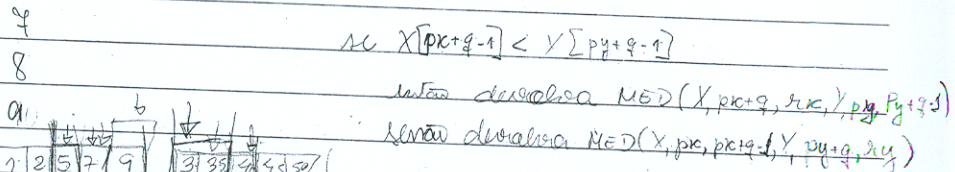 7
se X[px+q-1] < Y[py+q-1]
8
então devolva MED(X, px+q, rx, Y, py, Py+q-1)
9
senão devolva MED(X, px, px+q-1, Y, py+q, ry)
2 5 7 9 3 35